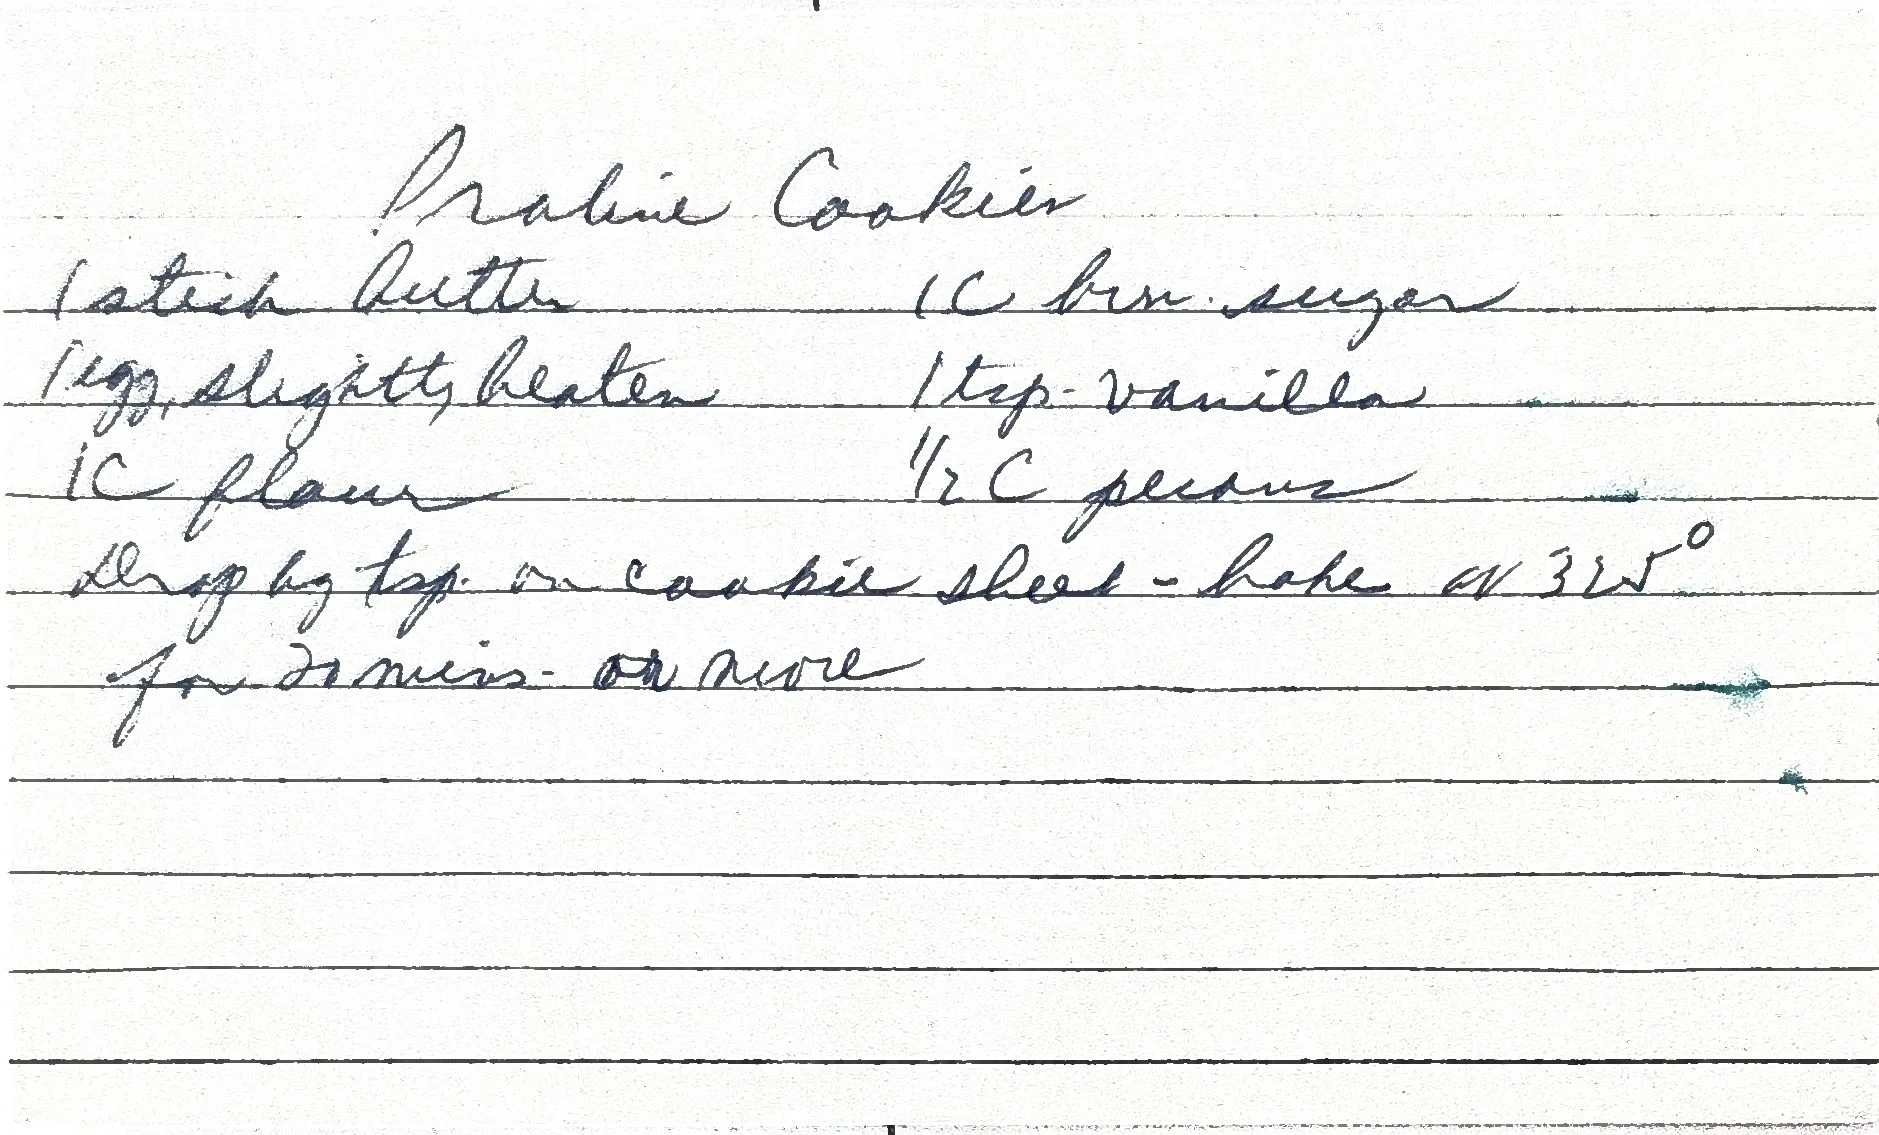 Praline Cookies
1 stick butter 1 C brn. sugar
1 egg, slightly beaten 1 tsp. vanilla
1 C flour 1/2 C pecans
Drop by tsp. on cookie sheet - bake at 325°
for 20 mins. or more